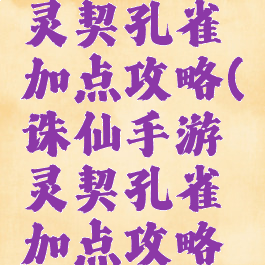 灵契孔雀
加点攻略(
诛仙手游
灵契孔雀
加点攻略